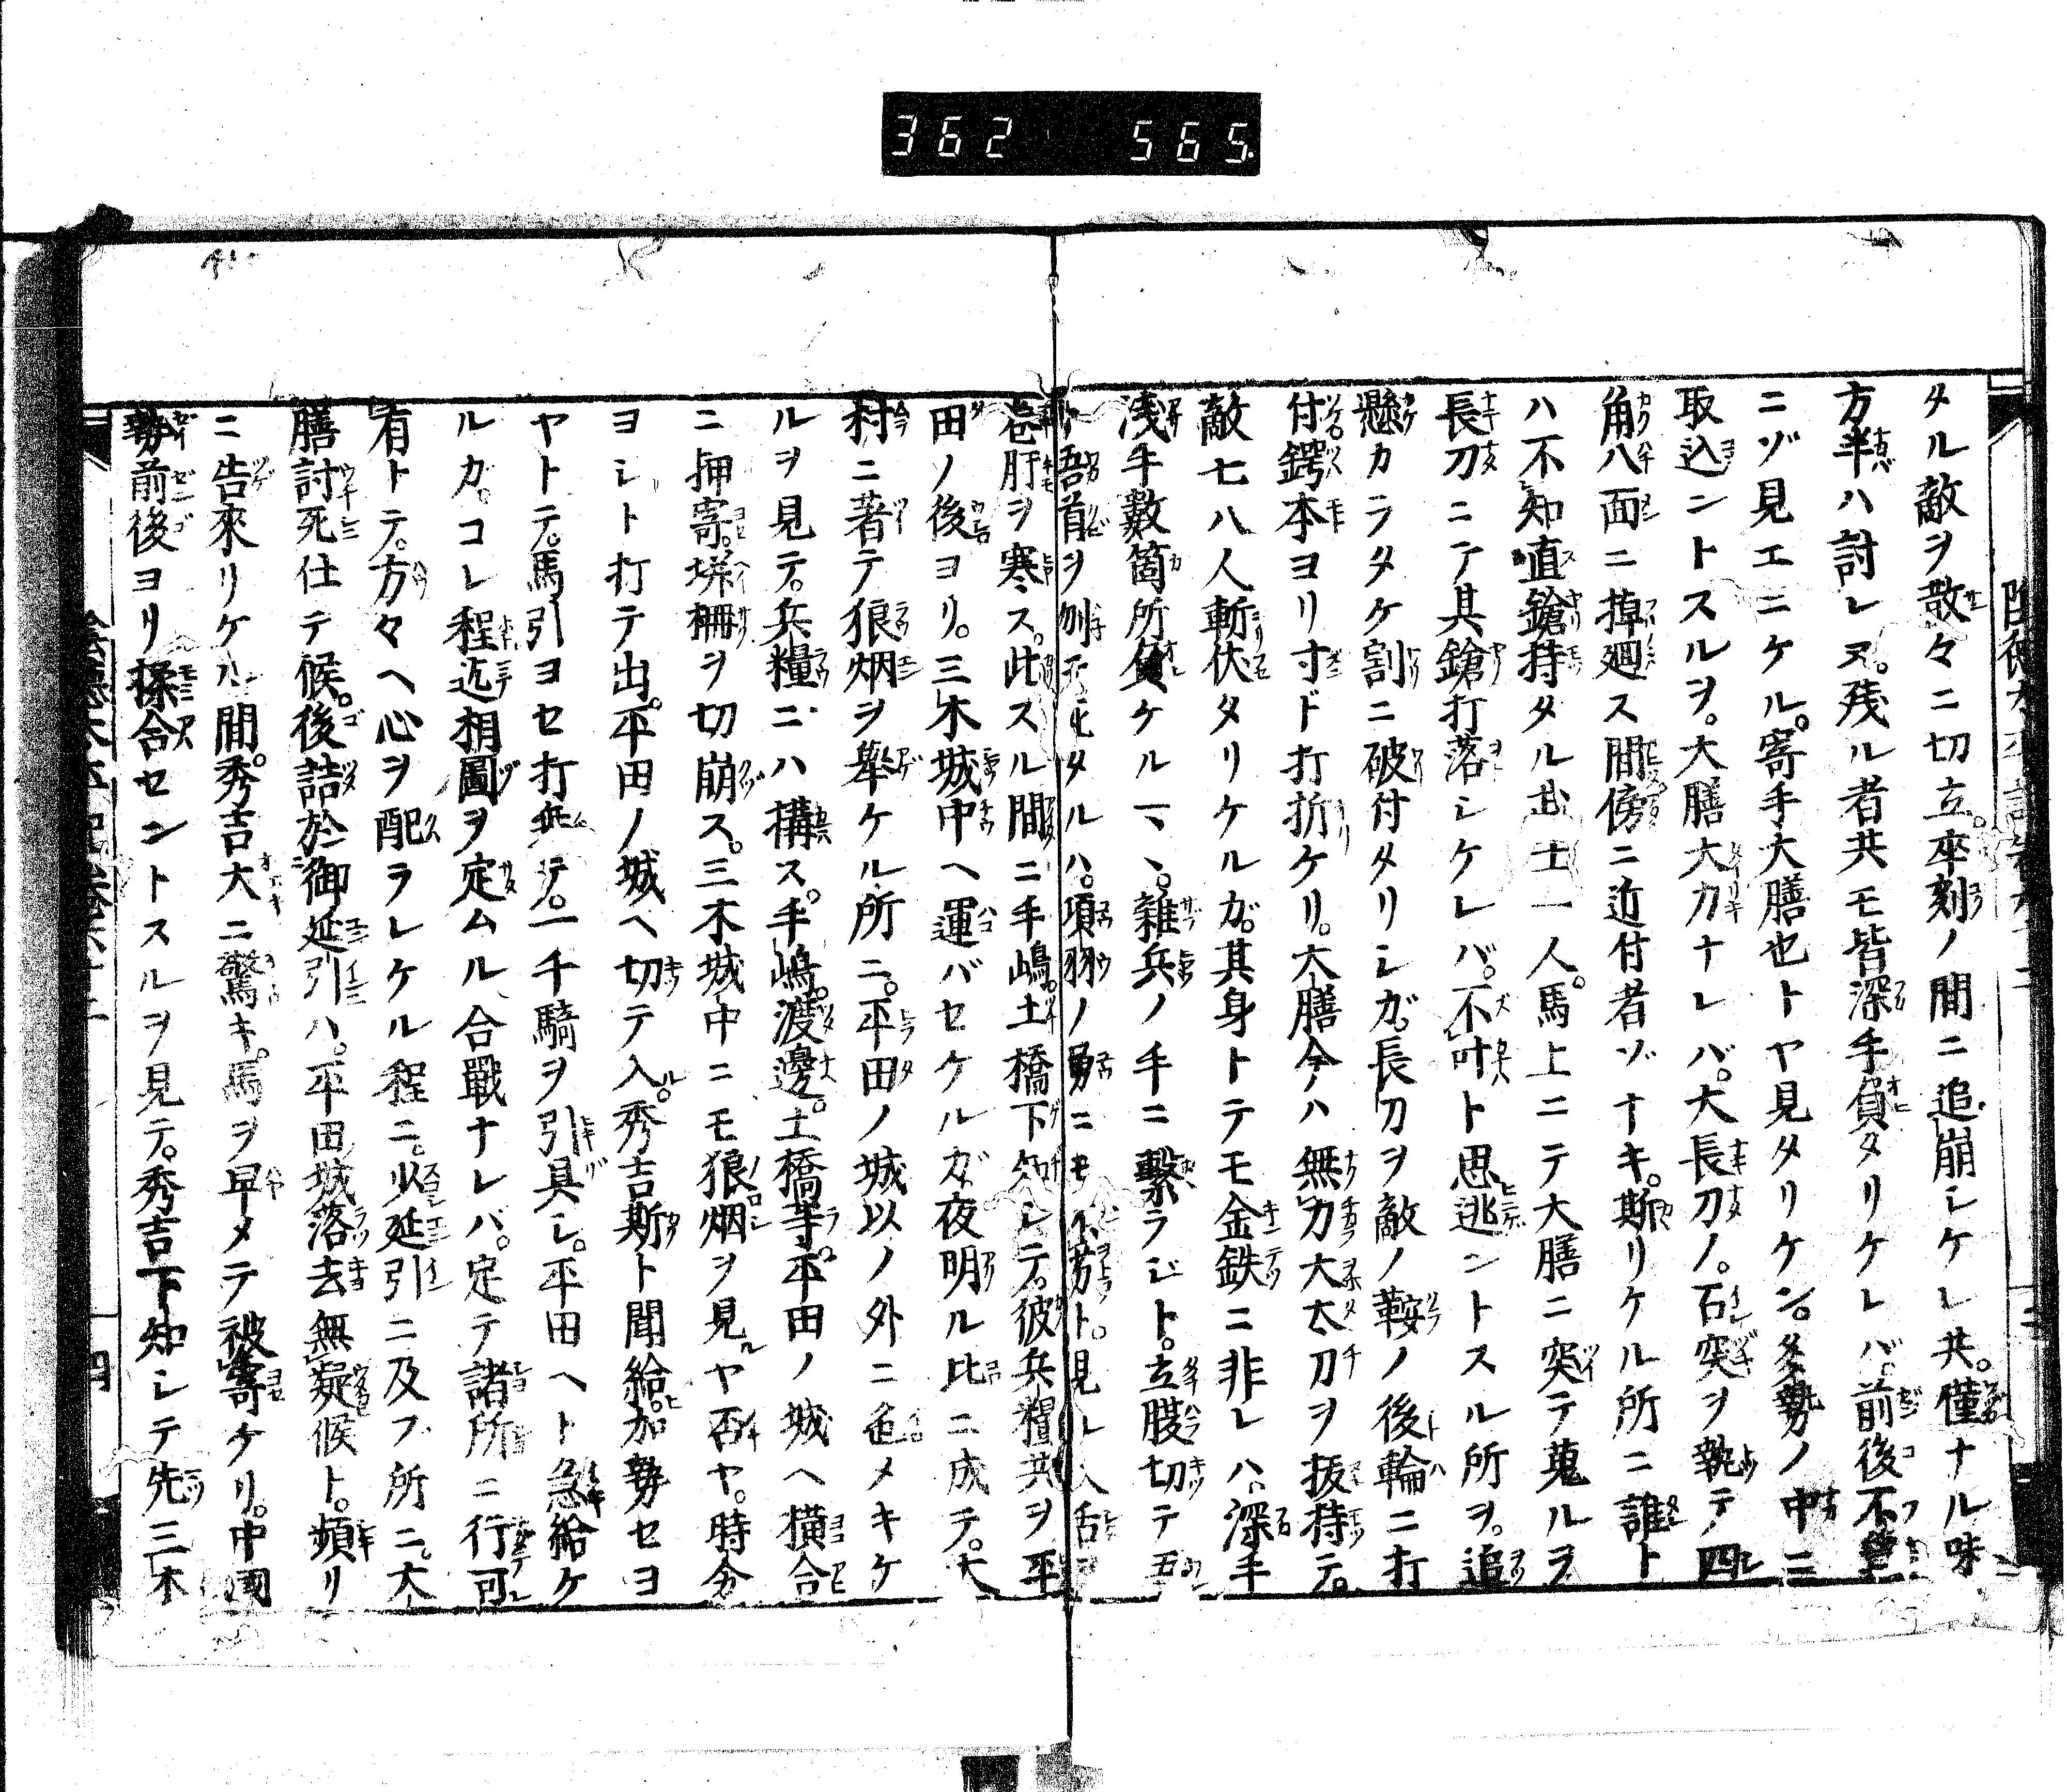 362 565
タル敵ヲ散々ニ切立。卒刻ノ間ニ追崩シケレ共。僅ナル味
方半ハ討レヌ。残ル者共モ皆深手負タリケレバ。前後不
ニゾ見エニケル。寄手大膳也トヤ見タリケン。多勢ノ中ニ
取込ントスルヲ。大膳大力ナレバ。大長刀ノ。石突ヲ執テ。四
角八面ニ掉廻ス間傍ニ近付者ゾナキ。斯リケル所ニ誰ト
ハ不知直鎗持タル武士一人。馬上ニテ大膳ニ突テ蒐ルヲ
長刀ニテ其鎗打落シケレバ。不叶ト思逃ントスル所ヲ。追
懸カラタケ割ニ破付タリシガ。長刀ヲ敵ノ鞍ノ後輪ニ打
付。鍔本ヨリ寸ド打折ケリ。大膳今ハ無力大太刀ヲ抜持テ。
敵七八人斬伏タリケルガ。其身トテモ金鉄ニ非レハ、深手
浅手數箇所負ケルマヽ。雜兵ノ手ニ繋ラジト。立腹切テ吾
ト吾首ヲ刎テ死タルハ。項羽ノ勇ニモ不劣ト。見ル人舌ヲ
巻肝ヲ寒ス。此スル間ニ手嶋。土橋下知シテ。彼兵糧共ヲ平
田ノ後ヨリ。三木城中ヘ運バセケルガ夜明ル比ニ成テ。大
村ニ著テ狼烟ヲ擧ケル所ニ。平田ノ城以ノ外ニ色メキケ
ルヲ見テ。兵糧ニハ構ス。手嶋。渡邊。土橋等。平田ノ城ヘ横合
ニ押寄。塀柵ヲ切崩ス。三木城中ニモ狼烟ヲ見ルヤ否ヤ。時分
ヨシト打テ出。平田ノ城ヘ切テ入。秀吉斯ト聞給ヒ。加勢セヨ
ヤトテ。馬引ヨセ打乗テ。一千騎ヲ引具シ。平田ヘト急給ケ
ルガ。コレ程近相圖ヲ定ムル合戰ナレバ。定テ諸所ニ行可
有トテ。方々ヘ心ヲ配ラレケル程ニ。少延引ニ及フ所ニ。大
膳討死仕テ候。後詰於御延引ハ。平田城落去無疑候ト。頻リ
ニ告來リケル間。秀吉大ニ驚キ。馬ヲ早メテ被寄ケリ。中國
勢前後ヨリ揉合セントスルヲ見テ。秀吉下知シテ先三木